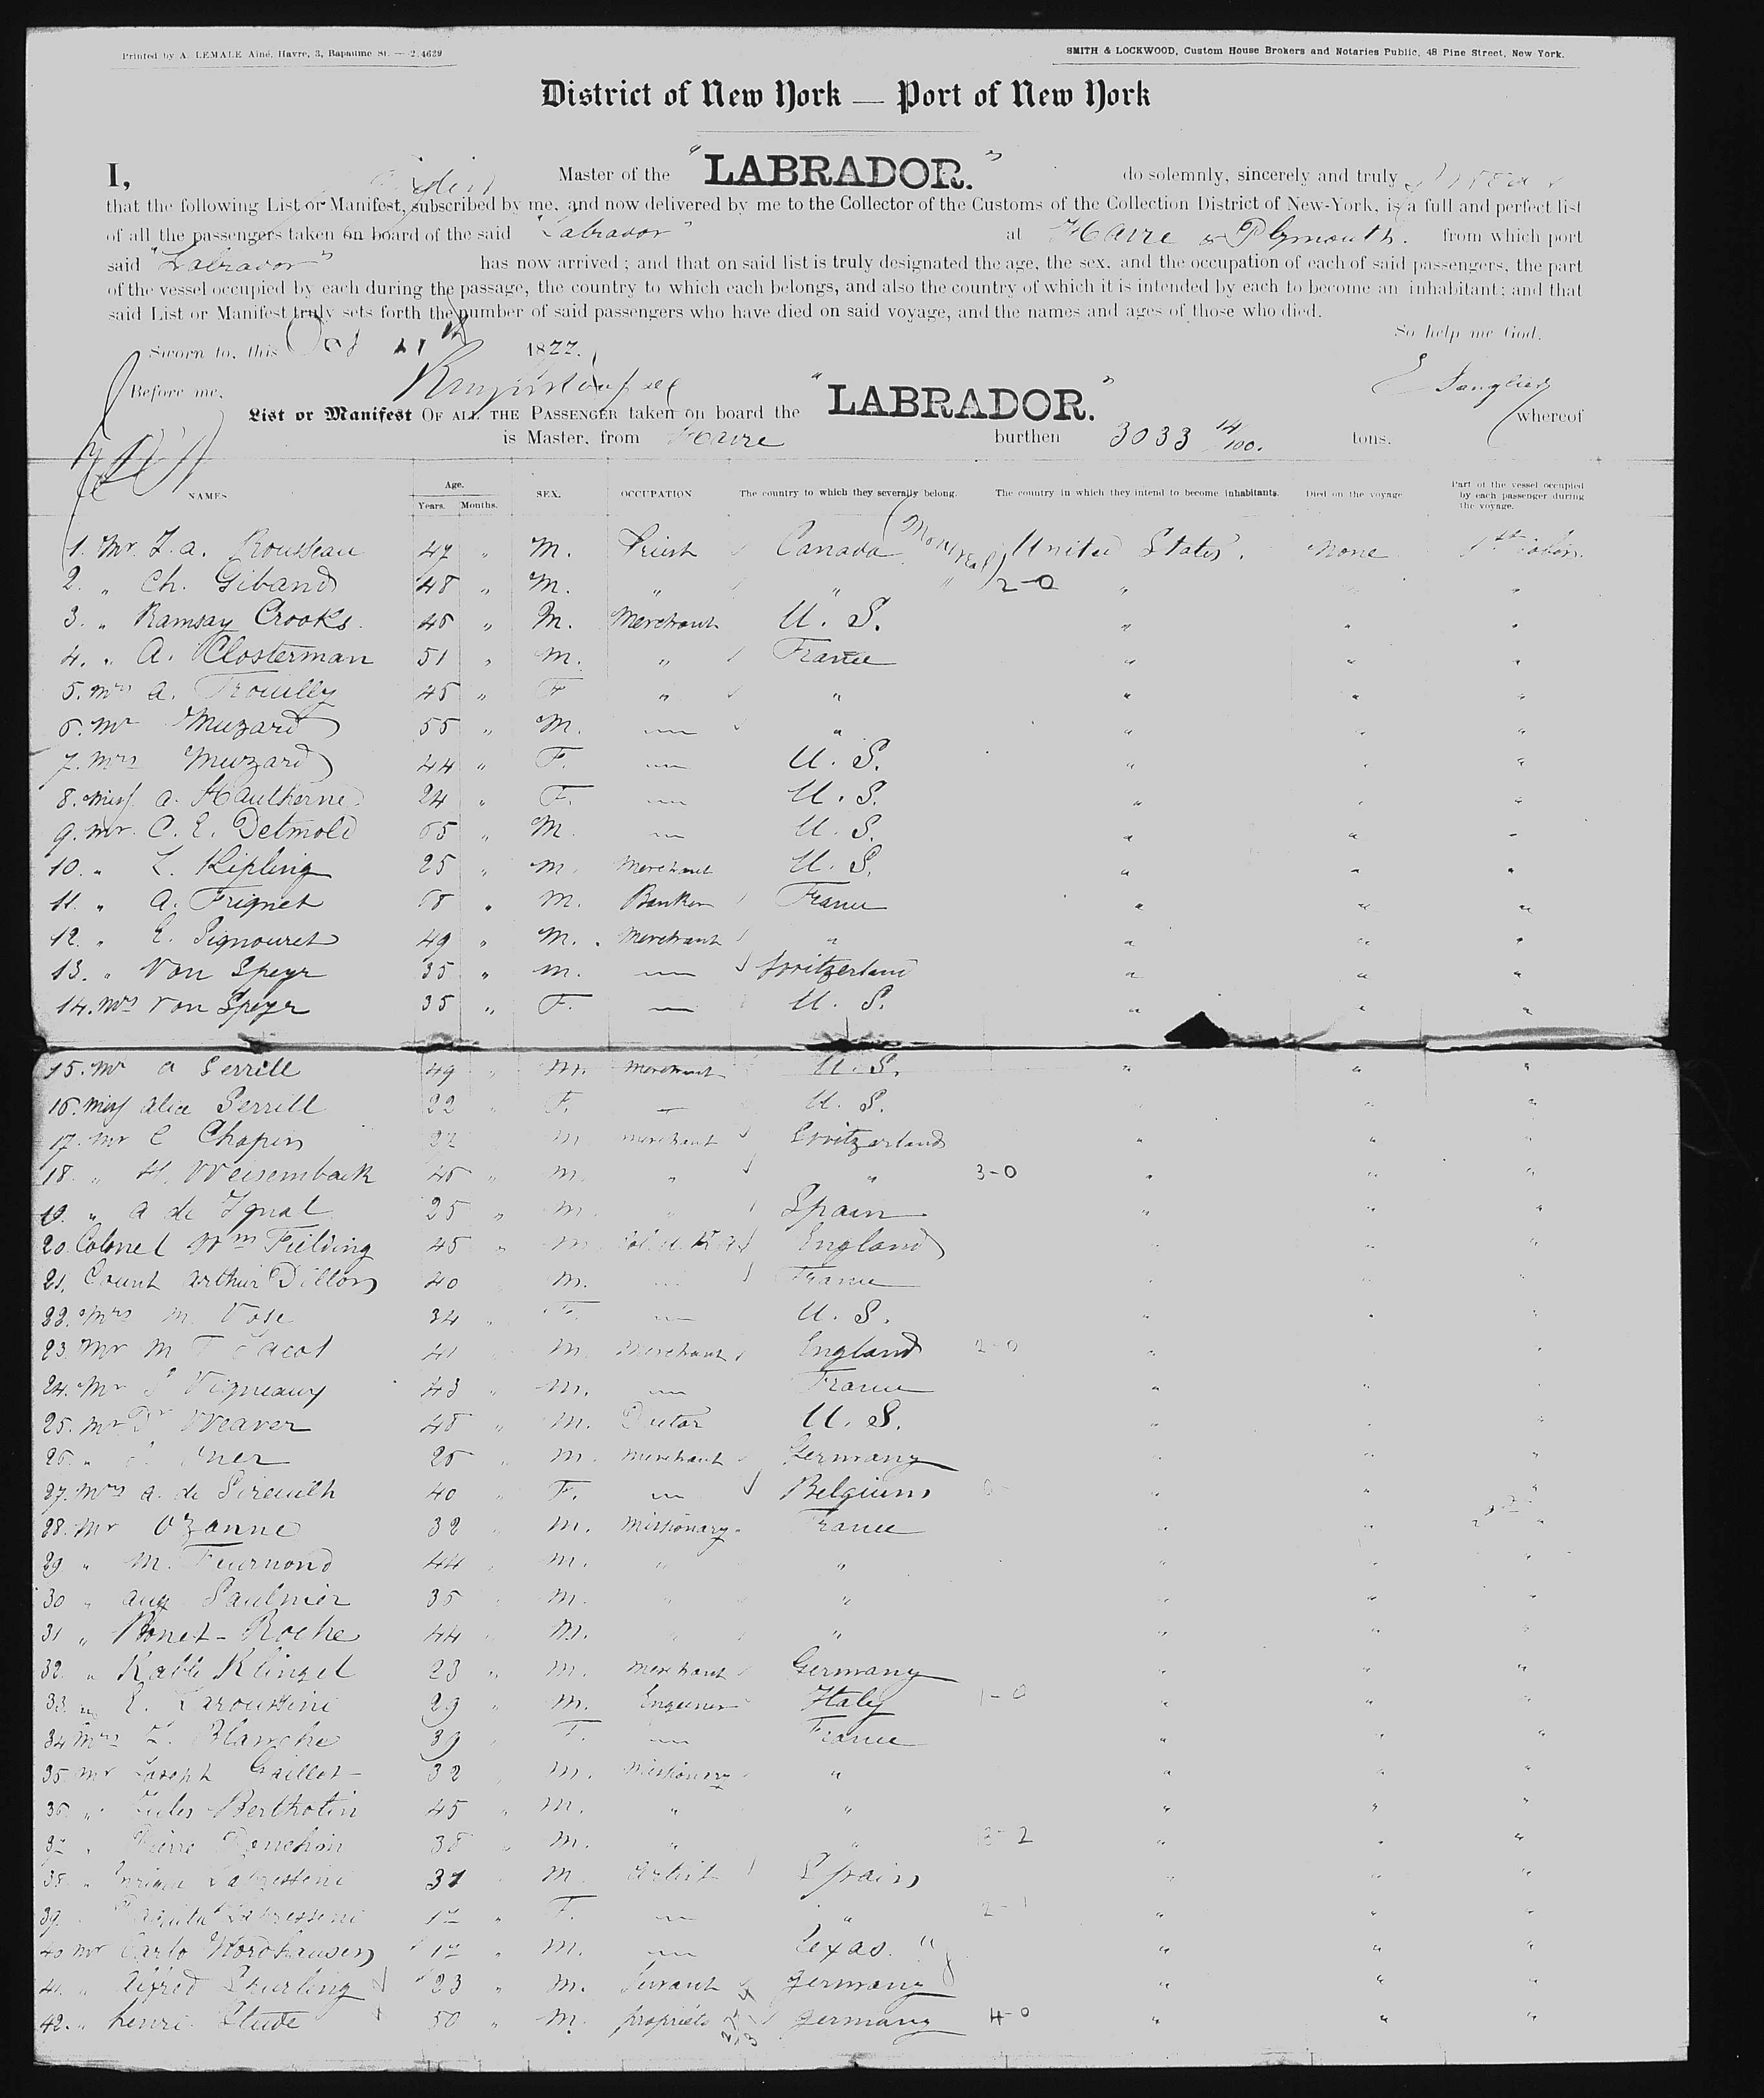 Printed by A. LEMALE Aîné, Havre, 3, Bapaume St. — 2.4629
SMITH & LOCKWOOD, Custom House Brokers and Notaries Public, 48 Pine Street, New-York.
District of New York — Port of New York
I, Master of the "LABRADOR." do solemnly, sincerely and truly
that the following List or Manifest, subscribed by me, and now delivered by me to the Collector of the Customs of the Collection District of New-York, is a full and perfect list
of all the passengers taken on board of the said "Labrador" at Havre & Plymouth. from which port
said "Labrador" has now arrived; and that on said list is truly designated the age, the sex, and the occupation of each of said passengers, the part
of the vessel occupied by each during the passage, the country to which each belongs, and also the country of which it is intended by each to become an inhabitant; and that
said List or Manifest truly sets forth the number of said passengers who have died on said voyage, and the names and ages of those who died.
So help me God.
Sworn to, this Oct 1877.
Before me, E Sanglier
List or Manifest OF ALL THE PASSENGER taken on board the "LABRADOR." whereof
is Master, from Havre burthen 3033 14/100. tons.
NAMES Age. Years. Months. SEX. OCCUPATION The country to which they severally belong. The country in which they intend to become inhabitants. Died on the voyage Part of the vessel occupied by each passenger during the voyage.
1. Mr. Z. a. Rousseau 47 " M. Priest Canada (Montreal) United States. None 1st
2. " Ch. Giband 48 " M. " " " 2-0 " "
3. " Ramsay Crooks. 45 " M. Merchant U. S. " " "
4. " A. Closterman 51 " M. " France " " "
5. Mrs A. Trouilly 45 " F " " " " "
6. Mr Muzard 55 " M. — " " " "
7. Mrs Muzard 44 " F. — U. S. " " "
8. Miss A. Haultherne 24 " F. — U. S. " " "
9. Mr. C. E. Detmold 65 " M. — U. S. " " "
10. " Z. Kipling 25 " M. Merchant U. S. " " "
11. " A. Frignet " M. Banker France " " "
12. " E. Signouret 49 " M. Merchant " " " "
13. " Von Speyr 35 " M. — Switzerland " " "
14. Mrs Von Speyr 35 " F. — U. S. " " "
15. Mr A Serrill 49 " M. Merchant U. S. " " "
16. Miss Alice Serrill 22 " F. — U. S. " " "
17. Mr C Chapin 27 M Merchant Switzerland " " "
18. " H. Weisembach 45 " M. " " 3-0 " " "
19. " A de Ygual 25 " M. " Spain " " "
20. Colonel Wm Fielding 45 " M England " " "
21. Count Arthur Dillon 40 M. — France " " "
22. Mrs M. Vose 34 " F. — U. S. " " "
23. Mr M 41 M. Merchant England 2-0 " " "
24. Mr Vigneaux 43 " M. — France " " "
25. Mr Dr Weaver 48 " M. Doctor U. S. " " "
26. " 26 " M. Merchant Germany " " "
27. Mrs A. de Sireuilh 40 " F. — Belgium " " "
28. Mr Ozanne 32 " M. Missionary France " " 2nd "
29 " M. Feurmond 44 " M. " " " " "
30 " Aug Saulnier 35 " M. " " " " "
31 " Bonet-Roche 44 " M. " " " " "
32. " Kalli Klingel 23 " M. Merchant Germany " " "
33. " E. Laroussini 29 " M. Engineer Italy 1-0 " " "
34 Mrs Z. Blanche 39 " F. — France " " "
35 Mr Joseph Gaillot 32 M. Missionary " " " "
36 " Jules Bertholin 45 " M. " " " " "
37 " Pierre 38 " M. " " 3-2 " " "
38. " 31 M Artist Spain " " "
39. 17 " F. — " 2-1 " " "
40 Mr Carlo Nordhausen 17 " M. — Texas. " " " "
41. " Alfred 23 " M. Servant Germany " " "
42. " Henri Stude 50 " M. Germany 4-0 " " "